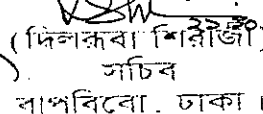 (দিলরূবা শিরাজী)
সচিব
বাপবিবো. ঢাকা।